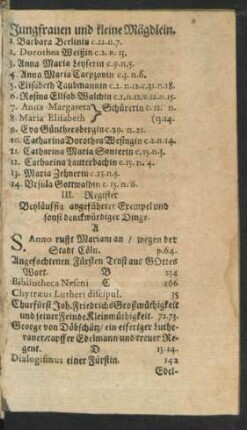 Jungfrauen und kleine Mägdlein.
1. Barbara Berlinin c.11.n.7.
2. Dorothea Weißin c.2. n. 13.
3. Anna Maria Leyserin c.9.n.5.
4. Anna Maria Carpzovin c.3. n.6.
5. Elisabeth Taubmannin c.2. n.12.c.31.n.18.
6. Rosina Elisab Walchin c.1.n.12.v.12.n.15.
7. Anna-Margareta Schürerin c. 12. n.
8. Maria Elisabeth (13.14.
9. Eva Günthersbergin c.29. n.22.
10. Catharina Dorothea Wesingin c.2.n.14.
11. Catharina Maria Sauterin c.15.n.3.
12. Catharina Lauterbachin c.15. n. 4.
13. Maria Zehnerin c.25.n.5.
24. Ursula Gottwaldin c. 15. n. 6.
III. Register
Beyläuffig angeführter Exempel und
sonst denckwürdiger Dinge.
A
S. Anno rufft Mariam an / wegen der
Stadt Cöln. p.64.
Angefochtenen Fürsten Trost aus GOttes
Wort. B 234
Bibliotheca Neseni C 206
Chytræus Lutheri discipul. 35
Churfürst Joh. Friedrichs Großmüthigkeit
und seiner Feinde Kleinmüthigkeit. 72.73.
George von Döbschütz / ein eiferiger Luthe-
raner / tapffer Edelmann und treuer Re-
gent. D 13.14.
Dialogismus einer Fürstin. 142
Edel-